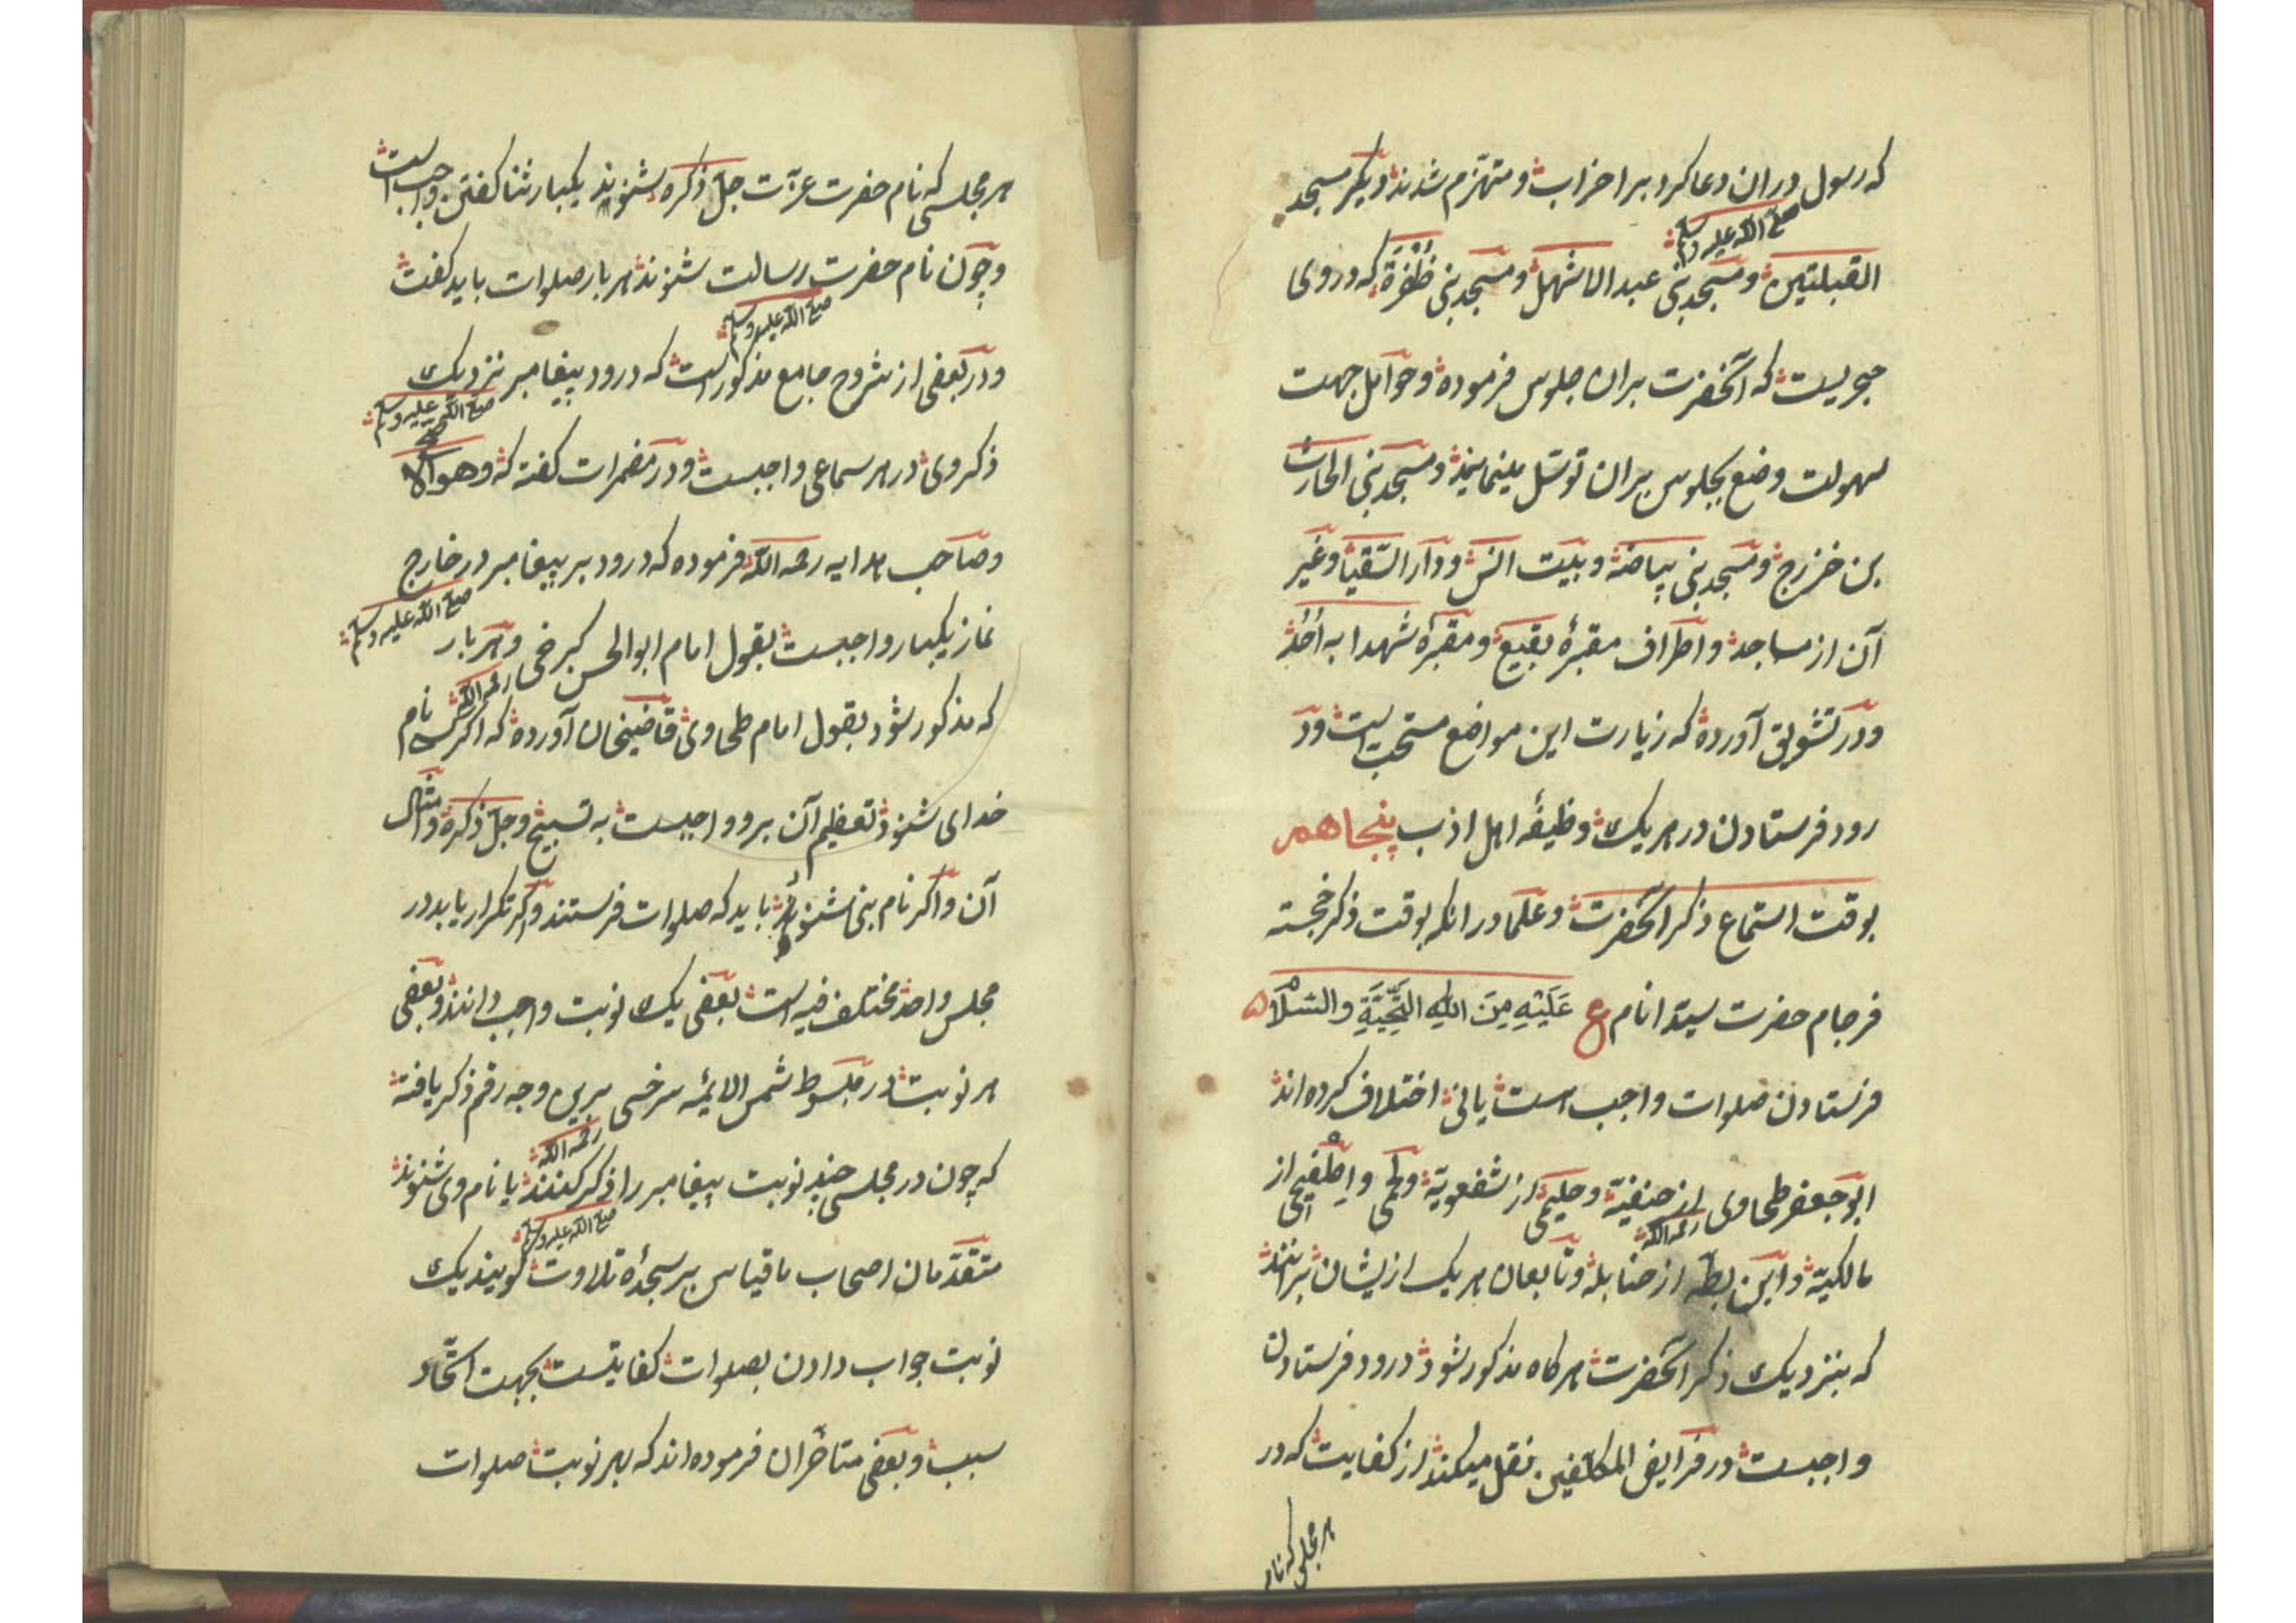 که رسول دران دعا کرد بر احزاب و متهزم شدند و دیگر مسجد
صلی الله علیه وسلم
القبلتین و مسجد بنی عبد الاشهل و مسجد بنی ظفرة که در وی
حجریست که آنحضرت بران جلوس فرموده و حوامل جهت
سهولت وضع بجلوس بران توسل مینمایند و مسجد بنی الحارث
بن خزرج و مسجد بنی بیاضه و بیت انس و دار السقیا و غیر
آن از مساجد و اطراف مقبرهٔ بقیع و مقبرهٔ شهدا به اُحُد
و در تشویق آورده که زیارت این مواضع مستحب است و د
رود فرستادن در هر یک وظیفهٔ اهل ادب پنجاهم
بوقت استماع ذکر آنحضرت و علما در انکه بوقت ذکر خجسته
فرجام حضرت سید انام ع عَلَیْهِ مِنَ اللهِ التَّحِیَّةِ والسَّلَام
فرستادن صلوات واجب است یا نی اختلاف کرده اند
ابو جعفر طحاوی از حنفیة و حلیمی از شفعویة و
از
رحمه الله
مالکیة و ابن بطه از حنابله و تابعان هر یک از ایشان برانند
که بنزدیک ذکر آنحضرت هر کاه مذکور شود درود فرستادن
واجبست در فرایض المکلفین نقل میکند از کفایت که در
هر مجلسی که نام
هر مجلسی که نام حضرت عزت جل ذکره بشنوند یکبار ثنا کفتن واجب است
و چون نام حضرت رسالت شنوند هر بار صلوات باید کفت
صلی الله علیه وسلم
و در بعضی از شروح جامع مذکور است که درود پیغامبر نزدیک
صلی الله علیه وسلم
ذکر وی در هر سماعی واجبست و در مضمرات کفته که وهو الاصح
و صاحب هدایه رحمه الله فرموده که درود بر پیغامبر در خارج
صلی الله علیه وسلم
نماز یکبار واجبست بقول امام ابو الحسن کرخی و هر بار
رحمه الله
که مذکور شود بقول امام طحاوی قاضیخان آورده که اکر کسی نام
خدای شنود تعظیم آن برو واجبست به تسبیح و جل ذکره و امثال
آن و اکر نام نبی شنوند باید که صلوات فرستند و اکر تکرار یابد در
مجلس واحد مختلف فیه است بعضی یک نوبت واجب دانند و بعضی
هر نوبت در مبسوط شمس الایمه سرخسی برین وجه رقم ذکر یافته
رحمه الله
که چون در مجلسی چند نوبت پیغامبر را ذکر کنند یا نام وی شنوند
صلی الله علیه وسلم
متقدمان اصحاب ما قیاس بر سجدهٔ تلاوت کویند یک
نوبت جواب دادن بصلوات کفایتست بجهت اتحاد
سبب و بعضی متاخران فرموده اند که بهر نوبت صلوات